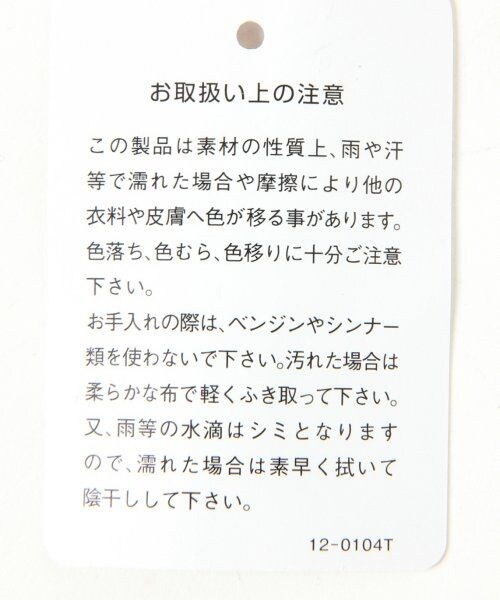 お取扱い上の注意
この製品は素材の性質上、雨や汗
等で濡れた場合や摩擦により他の
衣料や皮膚へ色が移る事があります。
色落ち、色むら、色移りに十分ご注意
下さい。
お手入れの際は、ベンジンやシンナー
類を使わないで下さい。汚れた場合は
柔らかな布で軽くふき取って下さい。
又、雨等の水滴はシミとなります
ので、濡れた場合は素早く拭いて
陰干しして下さい。
12-0104T